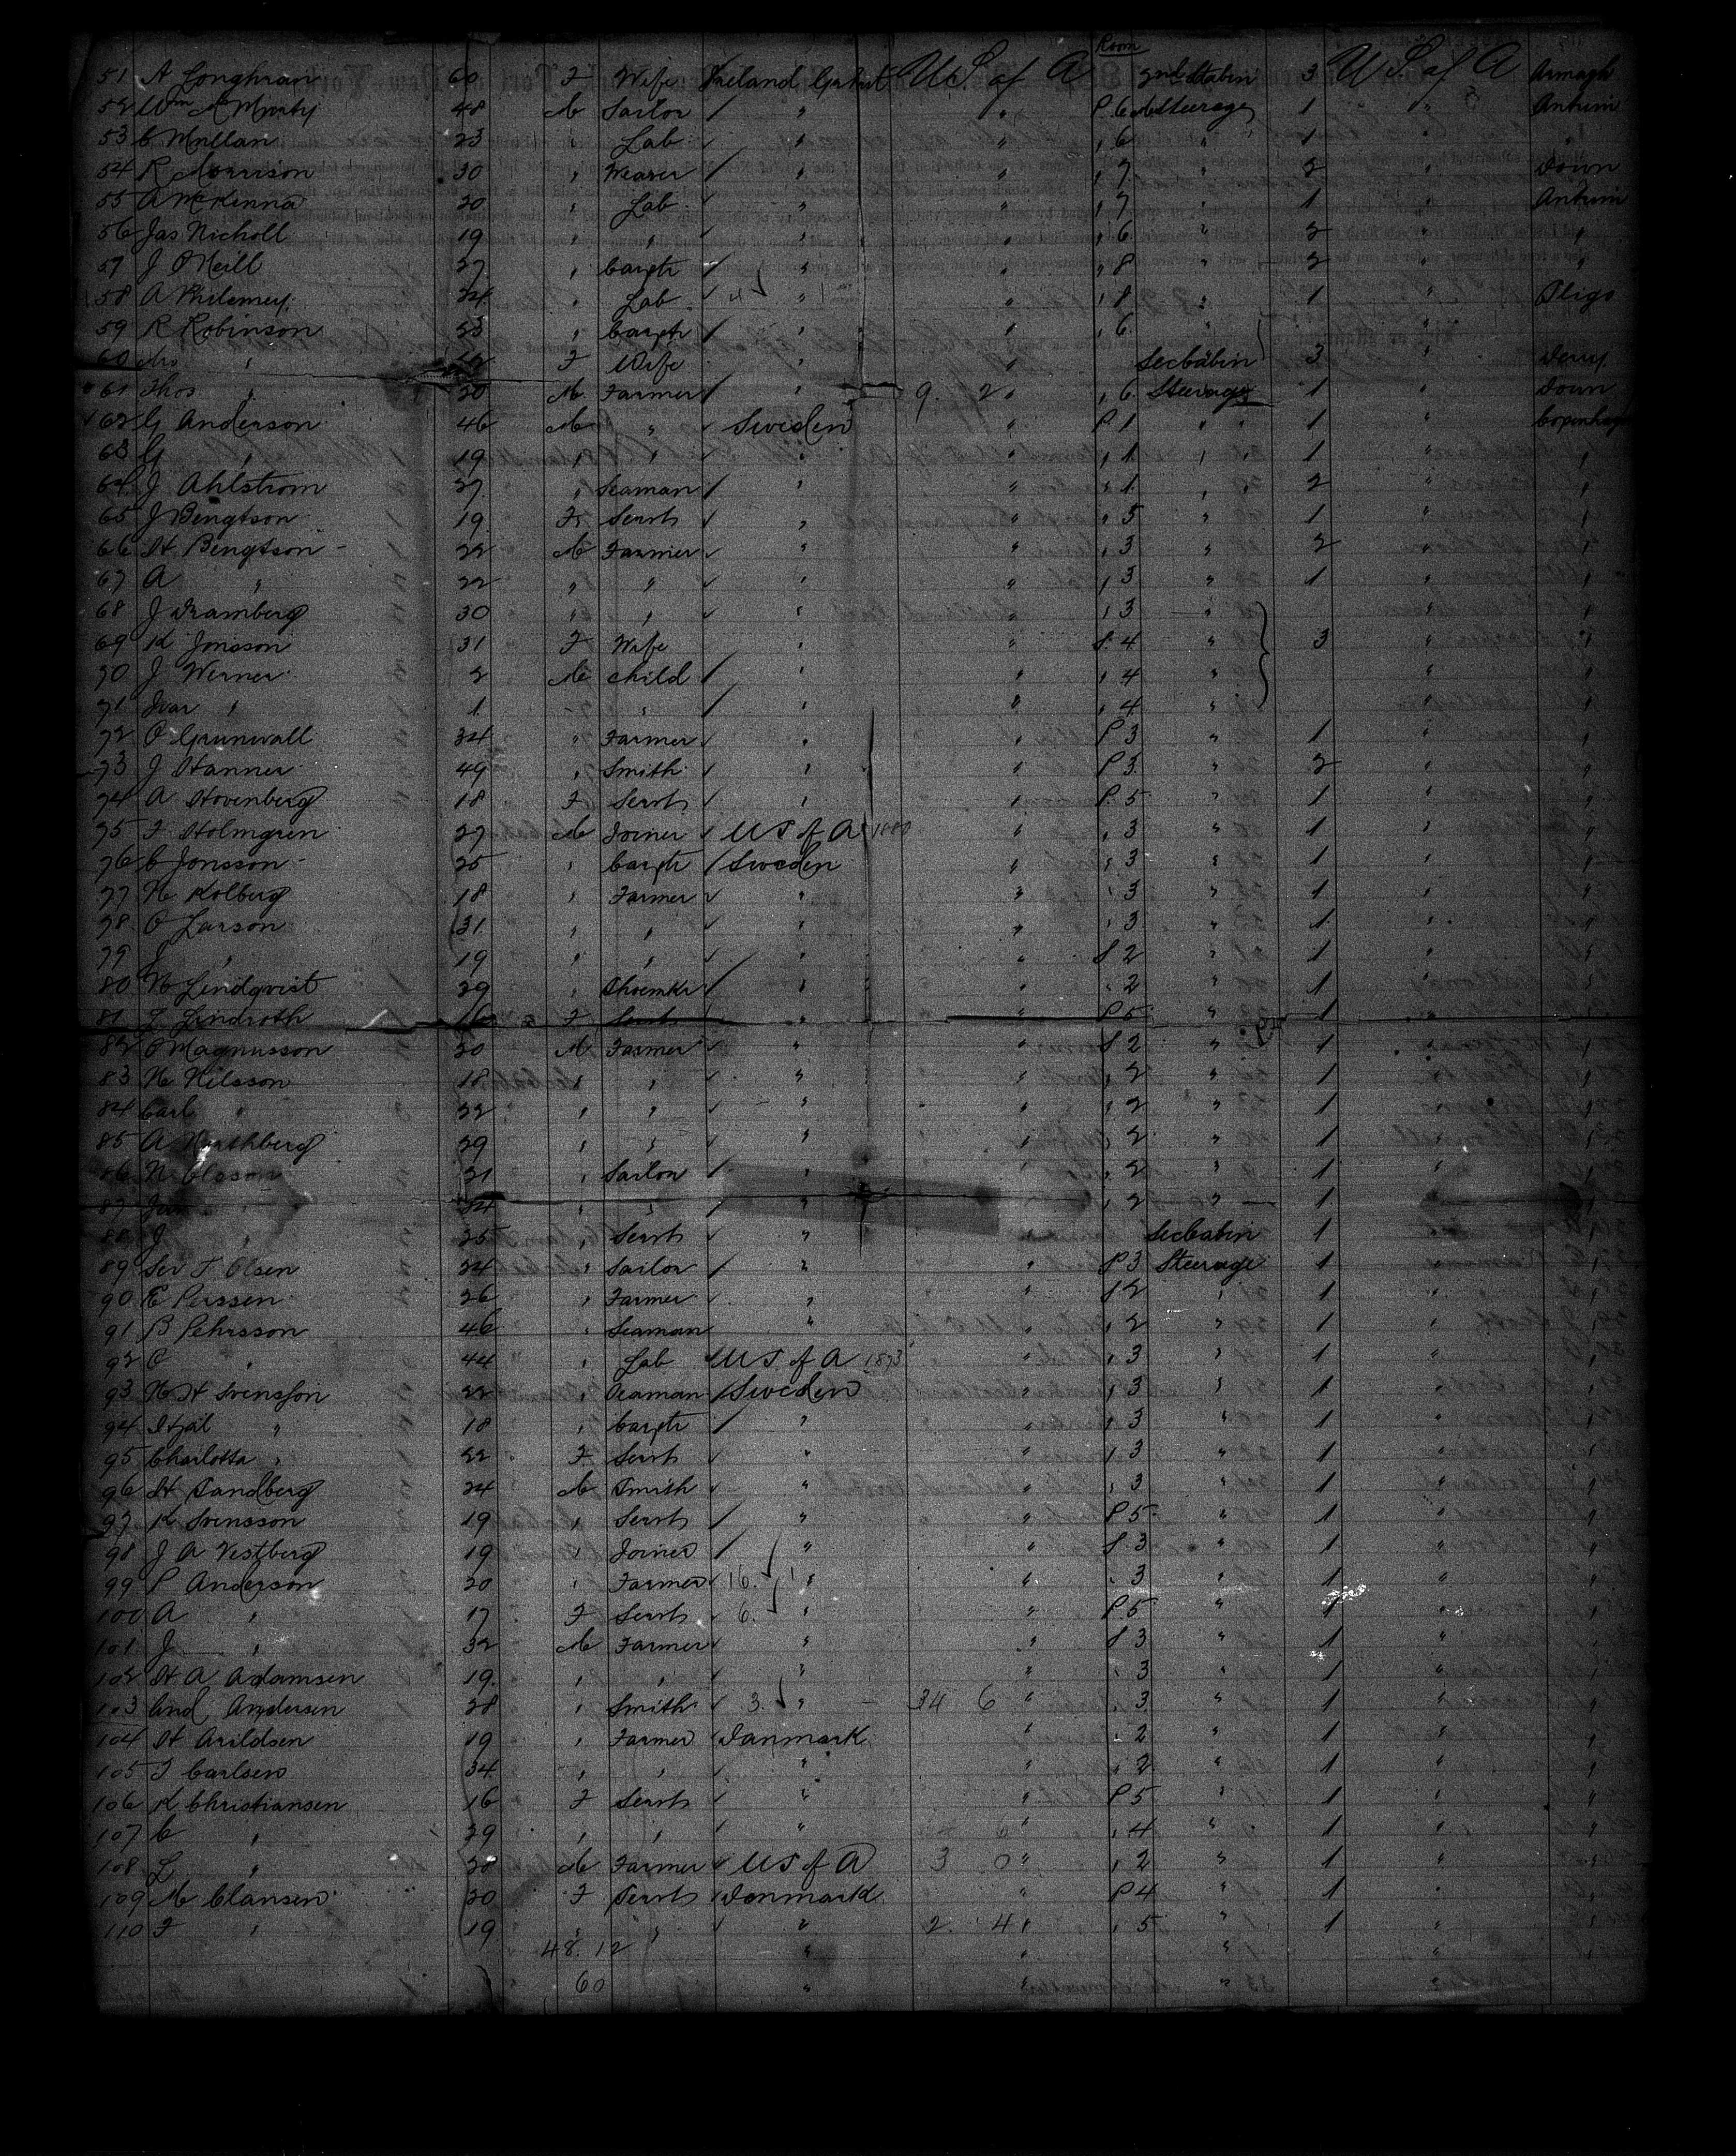 Room
51 A Longhran 60 F Wife Ireland Gt Brit U S. of A 2nd Cabin 3 U S. of A Armagh
52 Wm A 48 M Sailor / " " P 6 Steerage 1 " Antrim
53 C Mullan 23 " Lab " " " 6 " 1 " "
54 R Morrison 30 " Weaver / " " " 7 " 2 " Down
55 A McKenna 20 " Lab " " " 7 " 1 " Antrim
56 Jas Nicholl 19 " " " " " 6 " 2 " "
57 J O'Neill 27 " Carptr / " " " 8 " 2 " "
58 A 24 " Lab " " " 8 " 1 " Sligo
59 R Robinson 53 " Carptr / " " " 6 " "
60 Mrs " F Wife " Sec Cabin 3 " Derry
61 Thos " 20 M Farmer / " 9. 2 " " 6 Steerage 1 " Down
62 G Anderson 46 M " Sweden " P 1 " 1 " Copenhagen
63 G " 19 " " " " " 1 " 1 " "
64 J Ahlstrom 27 " Seaman / " " " 1 " 2 " "
65 J Bengtson 19 F Servt " " " 5 " 1 " "
66 H Bengtson 22 M Farmer " " " 3 " 2 " "
67 A " 22 " " " " " 3 " 1 " "
68 J Framberg 30 " " " " " 3 " " "
69 K Jonsson 31 F Wife " " S. 4 " 3 " "
70 J Werner 2 M child / " " " 4 " " "
71 Ivar " 1 " " / " " " 4 " " "
72 O Grunwall 34 " Farmer " " P 3 " 1 " "
73 J Hanner 49 " Smith " " P 3 " 2 " "
74 A Hovenberg 18 F Servt " " P. 5 " 1 " "
75 F Holmgren 27 M Joiner U S of A " " 3 " 1 " "
76 C Jonsson 25 " Carptr / Sweden " " 3 " 1 " "
77 N Kolberg 18 " Farmer " " " 3 " 1 " "
78 O Larson 31 " " " " " 3 " 1 " "
79 J " 19 " " " " S 2 " 1 " "
80 N Lindqvist 29 " Shoemkr / " " " 2 " 1 " "
81 Lindroth 16 F Servt " " P 5 " 1 " "
82 O Magnusson 20 M Farmer " " S 2 " 1 " "
83 N Nilsson 18 " " " " " 2 " 1 " "
84 Carl " 22 " " " " " 2 " 1 " "
85 A 29 " " " " " 2 " 1 " "
86 N Olsson 21 " Sailor / " " 2 " 1 "
87 " " / " " 2 " 1 "
88 J " 25 " Servt " Sec Cabin 1
89 T Olsen 24 " Sailor / " " S 3 Steerage 1 "
90 E Perssen 26 " Farmer " " S 2 " 1 " "
91 B Pehrsson 46 " Seaman " " " 2 " 1 " "
92 O " 44 " Lab U S of A 1873 " " 3 " 1 " "
93 N H Svensson 22 " Seaman / Sweden " " 3 " 1 " "
94 " 18 " Carptr / " " " 3 " 1 " "
95 Charlotta " 22 F Servt " " " 3 " 1 " "
96 H Sandberg 24 M Smith " " " 3 " 1 " "
97 K Svensson 19 " Servt / " " P 5 " 1 " "
98 J A Vestberg 19 " Joiner / " " S 3 " 1 " "
99 P Anderson 20 " Farmer 16. " " " 3 " 1 " "
100 A " 17 F Servt 6. " " P. 5 " 1 " "
101 J " 32 M Farmer " " S 3 " 1 " "
102 H A Adamsen 19 " " " " " 3 " 1 " "
103 And Andersen 28 " Smith 3. " 34 6 " " 3 " 1 " "
104 H Arildsen 19 " Farmer Danmark " " 2 " 1 " "
105 J Carlsen 34 " " " " " 2 " 1 " "
106 K Christiansen 16 F Servt " " P 5 " 1 " "
107 C " 29 " " " " " 4 " 1 " "
108 L " M Farmer U S of A 3 0 " " 2 " 1 " "
109 M Clansen 20 F Servt Danmark " P 4 " 1 " "
110 F " 19 " " " 2. 4 " " 5 " 1 " "
48. 12 " " " "
60 " " " "